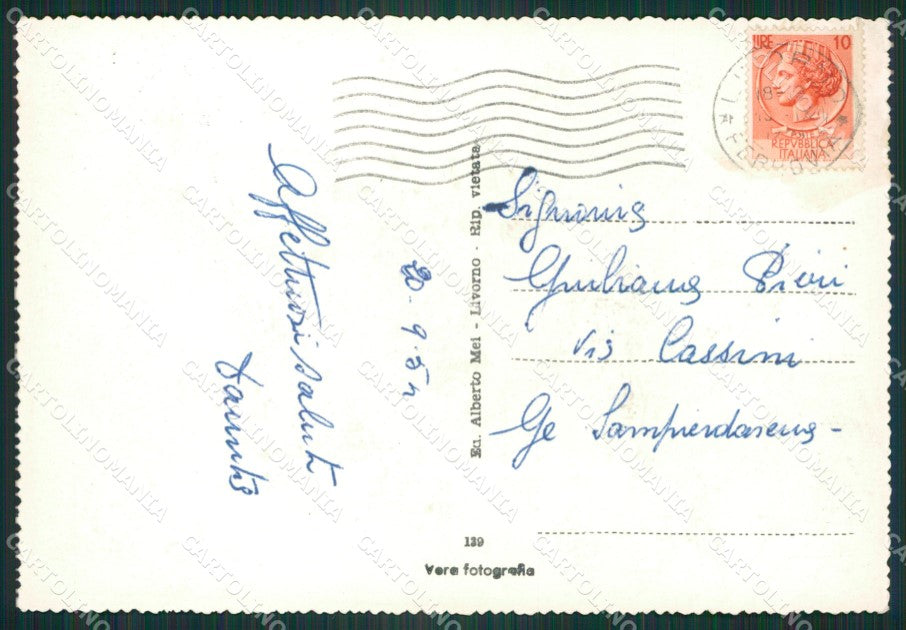 Affettuosi saluti
20.9.54
Ed. Alberto Mei - Livorno - Rip. vietata
LIRE 10
REPVBBLICA
ITALIANA
Signorina
Giuliana Pieri
Via Cassini
Ge Sampierdarena -
139
Vera fotografia
CARTOLINOMANIA